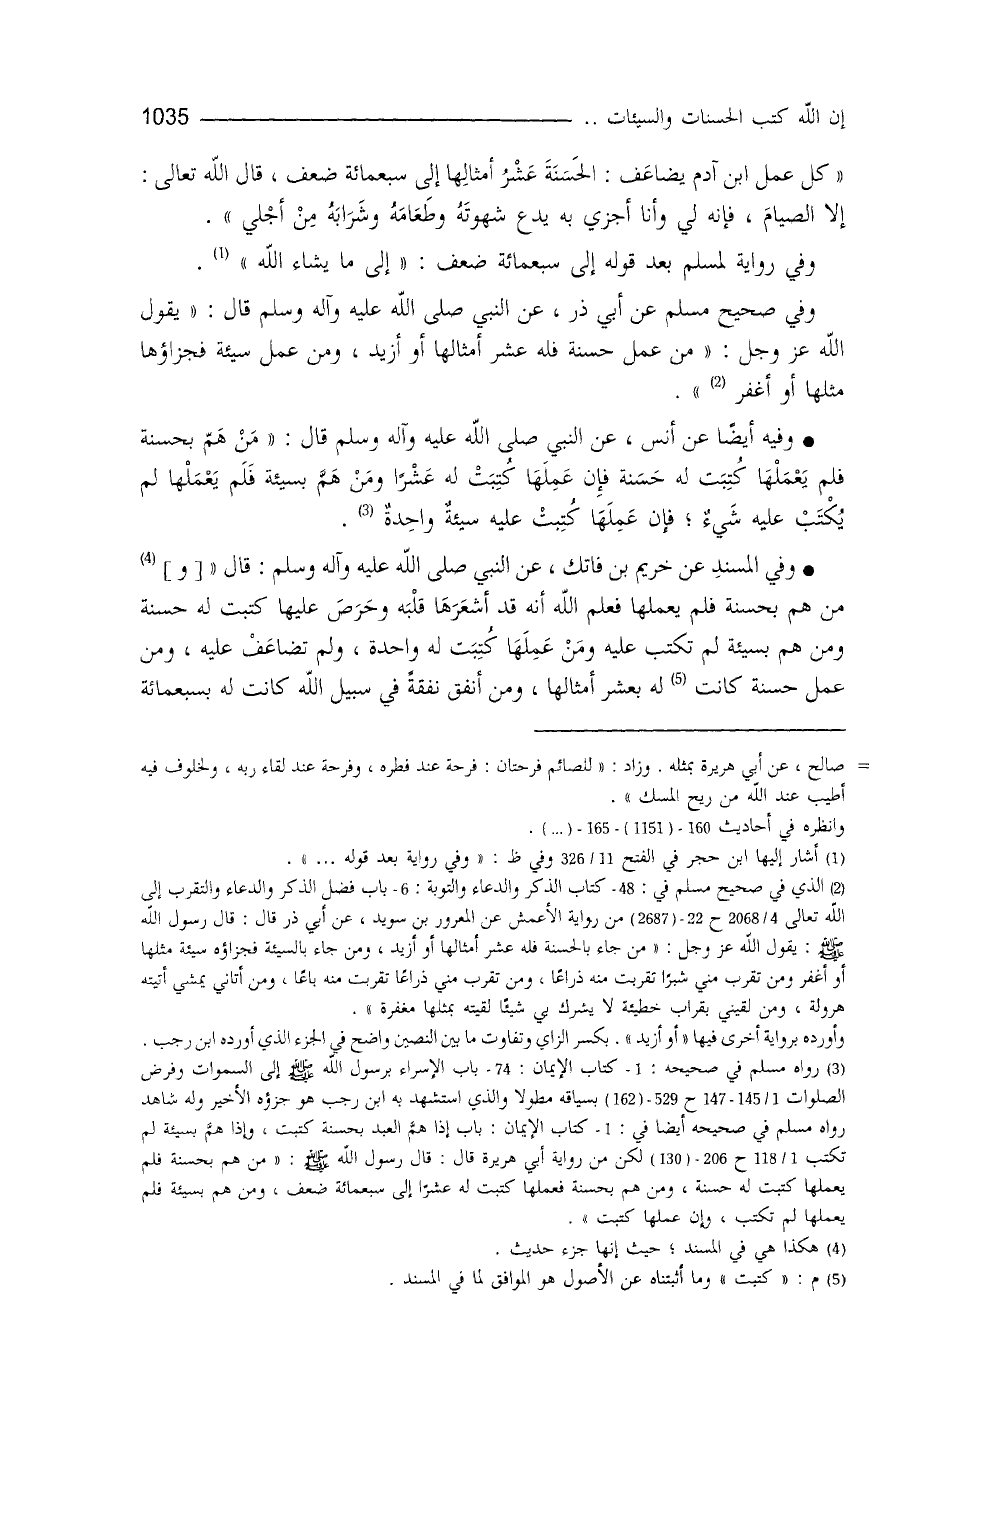 إن الله كتب الحسنات والسيئات .. 1035
« كل عمل ابن آدم يضاعَف : الحَسَنَةَ عَشْرُ أمثالِها إلى سبعمائة ضعف ، قال الله تعالى :
إلا الصيامَ ، فإنه لي وأنا أجزي به يدع شهوتَهُ وطَعَامَهُ وشَرَابَهُ مِنْ أجْلي » .
وفي رواية لمسلم بعد قوله إلى سبعمائة ضعف : « إلى ما يشاء الله » (1) .
وفي صحيح مسلم عن أبي ذر ، عن النبي صلى الله عليه وآله وسلم قال : « يقول
الله عز وجل : « من عمل حسنة فله عشر أمثالها أو أزيد ، ومن عمل سيئة فجزاؤها
مثلها أو أغفر (2) » .
● وفيه أيضًا عن أنس ، عن النبي صلى الله عليه وآله وسلم قال : « مَنْ هَمّ بحسنة
فلم يَعْمَلْهَا كُتِبَت له حَسَنة فإن عَمِلَهَا كُتِبَتْ له عَشْرًا ومَنْ هَمَّ بسيئة فَلَم يَعْمَلْها لم
يُكْتَبْ عليه شَيءٌ ؛ فإن عَمِلَهَا كُتِبتْ عليه سيئةٌ واحِدةٌ (3) .
● وفي المسندِ عن خريم بن فاتك ، عن النبي صلى الله عليه وآله وسلم : قال « [ و ] (4)
من هم بحسنة فلم يعملها فعلم الله أنه قد أشعَرَهَا قلْبَه وحَرَصَ عليها كتبت له حسنة
ومن هم بسيئة لم تكتب عليه ومَنْ عَمِلَهَا كُتِبَت له واحدة ، ولم تضاعَفْ عليه ، ومن
عمل حسنة كانت (5) له بعشر أمثالها ، ومن أنفق نفقةً في سبيل الله كانت له بسبعمائة
= صالح ، عن أبي هريرة بمثله . وزاد : « للصائم فرحتان : فرحة عند فطره ، وفرحة عند لقاء ربه ، ولخلوف فيه
أطيب عند الله من ريح المسك » .
وانظره في أحاديث 160 - ( 1151 ) - 165 - ( ... ) .
(1) أشار إليها ابن حجر في الفتح 11 / 326 وفي ظ : « وفي رواية بعد قوله ... » .
(2) الذي في صحيح مسلم في : 48- كتاب الذكر والدعاء والتوبة : 6- باب فضل الذكر والدعاء والتقرب إلى
الله تعالى 4/ 2068 ح 22 -(2687) من رواية الأعمش عن المعرور بن سويد ، عن أبي ذر قال : قال رسول الله
ﷺ : يقول الله عز وجل : « من جاء بالحسنة فله عشر أمثالها أو أزيد ، ومن جاء بالسيئة فجزاؤه سيئة مثلها
أو أغفر ومن تقرب مني شبرًا تقربت منه ذراعًا ، ومن تقرب مني ذراعًا تقربت منه باعًا ، ومن أتاني يمشي أتيته
هرولة ، ومن لقيني بقراب خطيئة لا يشرك بي شيئًا لقيته بمثلها مغفرة » .
وأورده برواية أخرى فيها « أو أزيد » . بكسر الزاي وتفاوت ما بين النصين واضح في الجزء الذي أورده ابن رجب .
(3) رواه مسلم في صحيحه : 1- كتاب الإيمان : 74- باب الإسراء برسول الله ﷺ إلى السموات وفرض
الصلوات 1/ 145-147 ح 529-(162) بسياقه مطولا والذي استشهد به ابن رجب هو جزؤه الأخير وله شاهد
رواه مسلم في صحيحه أيضا في : 1- كتاب الإيمان : باب إذا همَّ العبد بحسنة كتبت ، وإذا همَّ بسيئة لم
تكتب 1/ 118 ح 206 -(130) لكن من رواية أبي هريرة قال : قال رسول الله ﷺ : « من هم بحسنة فلم
يعملها كتبت له حسنة ، ومن هم بحسنة فعملها كتبت له عشرًا إلى سبعمائة ضعف ، ومن هم بسيئة فلم
يعملها لم تكتب ، وإن عملها كتبت » .
(4) هكذا هي في المسند ؛ حيث إنها جزء حديث .
(5) م : « كتبت » وما أثبتناه عن الأصول هو الموافق لما في المسند .